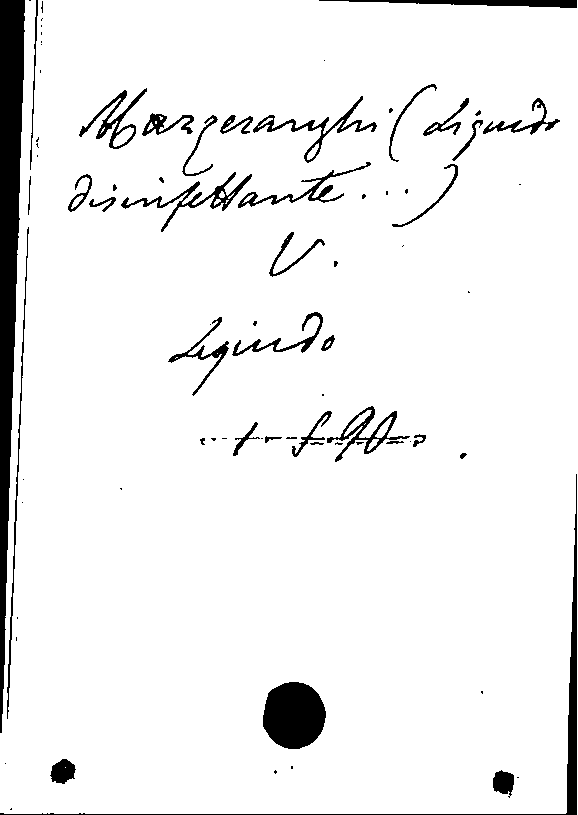 Marzeranghi (Liquido
disinfettante...)
V.
Liquido